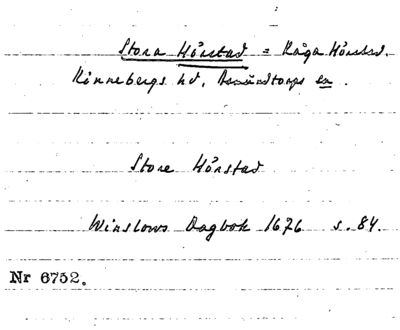 Stora Hörstad = Råga Hörstad.
Rönnebergs hd, Asmundtorps sn.
Store Hörstad
Winslows Dagbok 1676 s. 84.
Nr 6752.